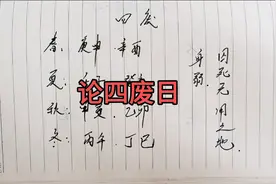 四废
春：庚申 辛酉
夏：
论四废日
秋： 乙卯
冬：丙午 丁巳
死无用之地
身弱